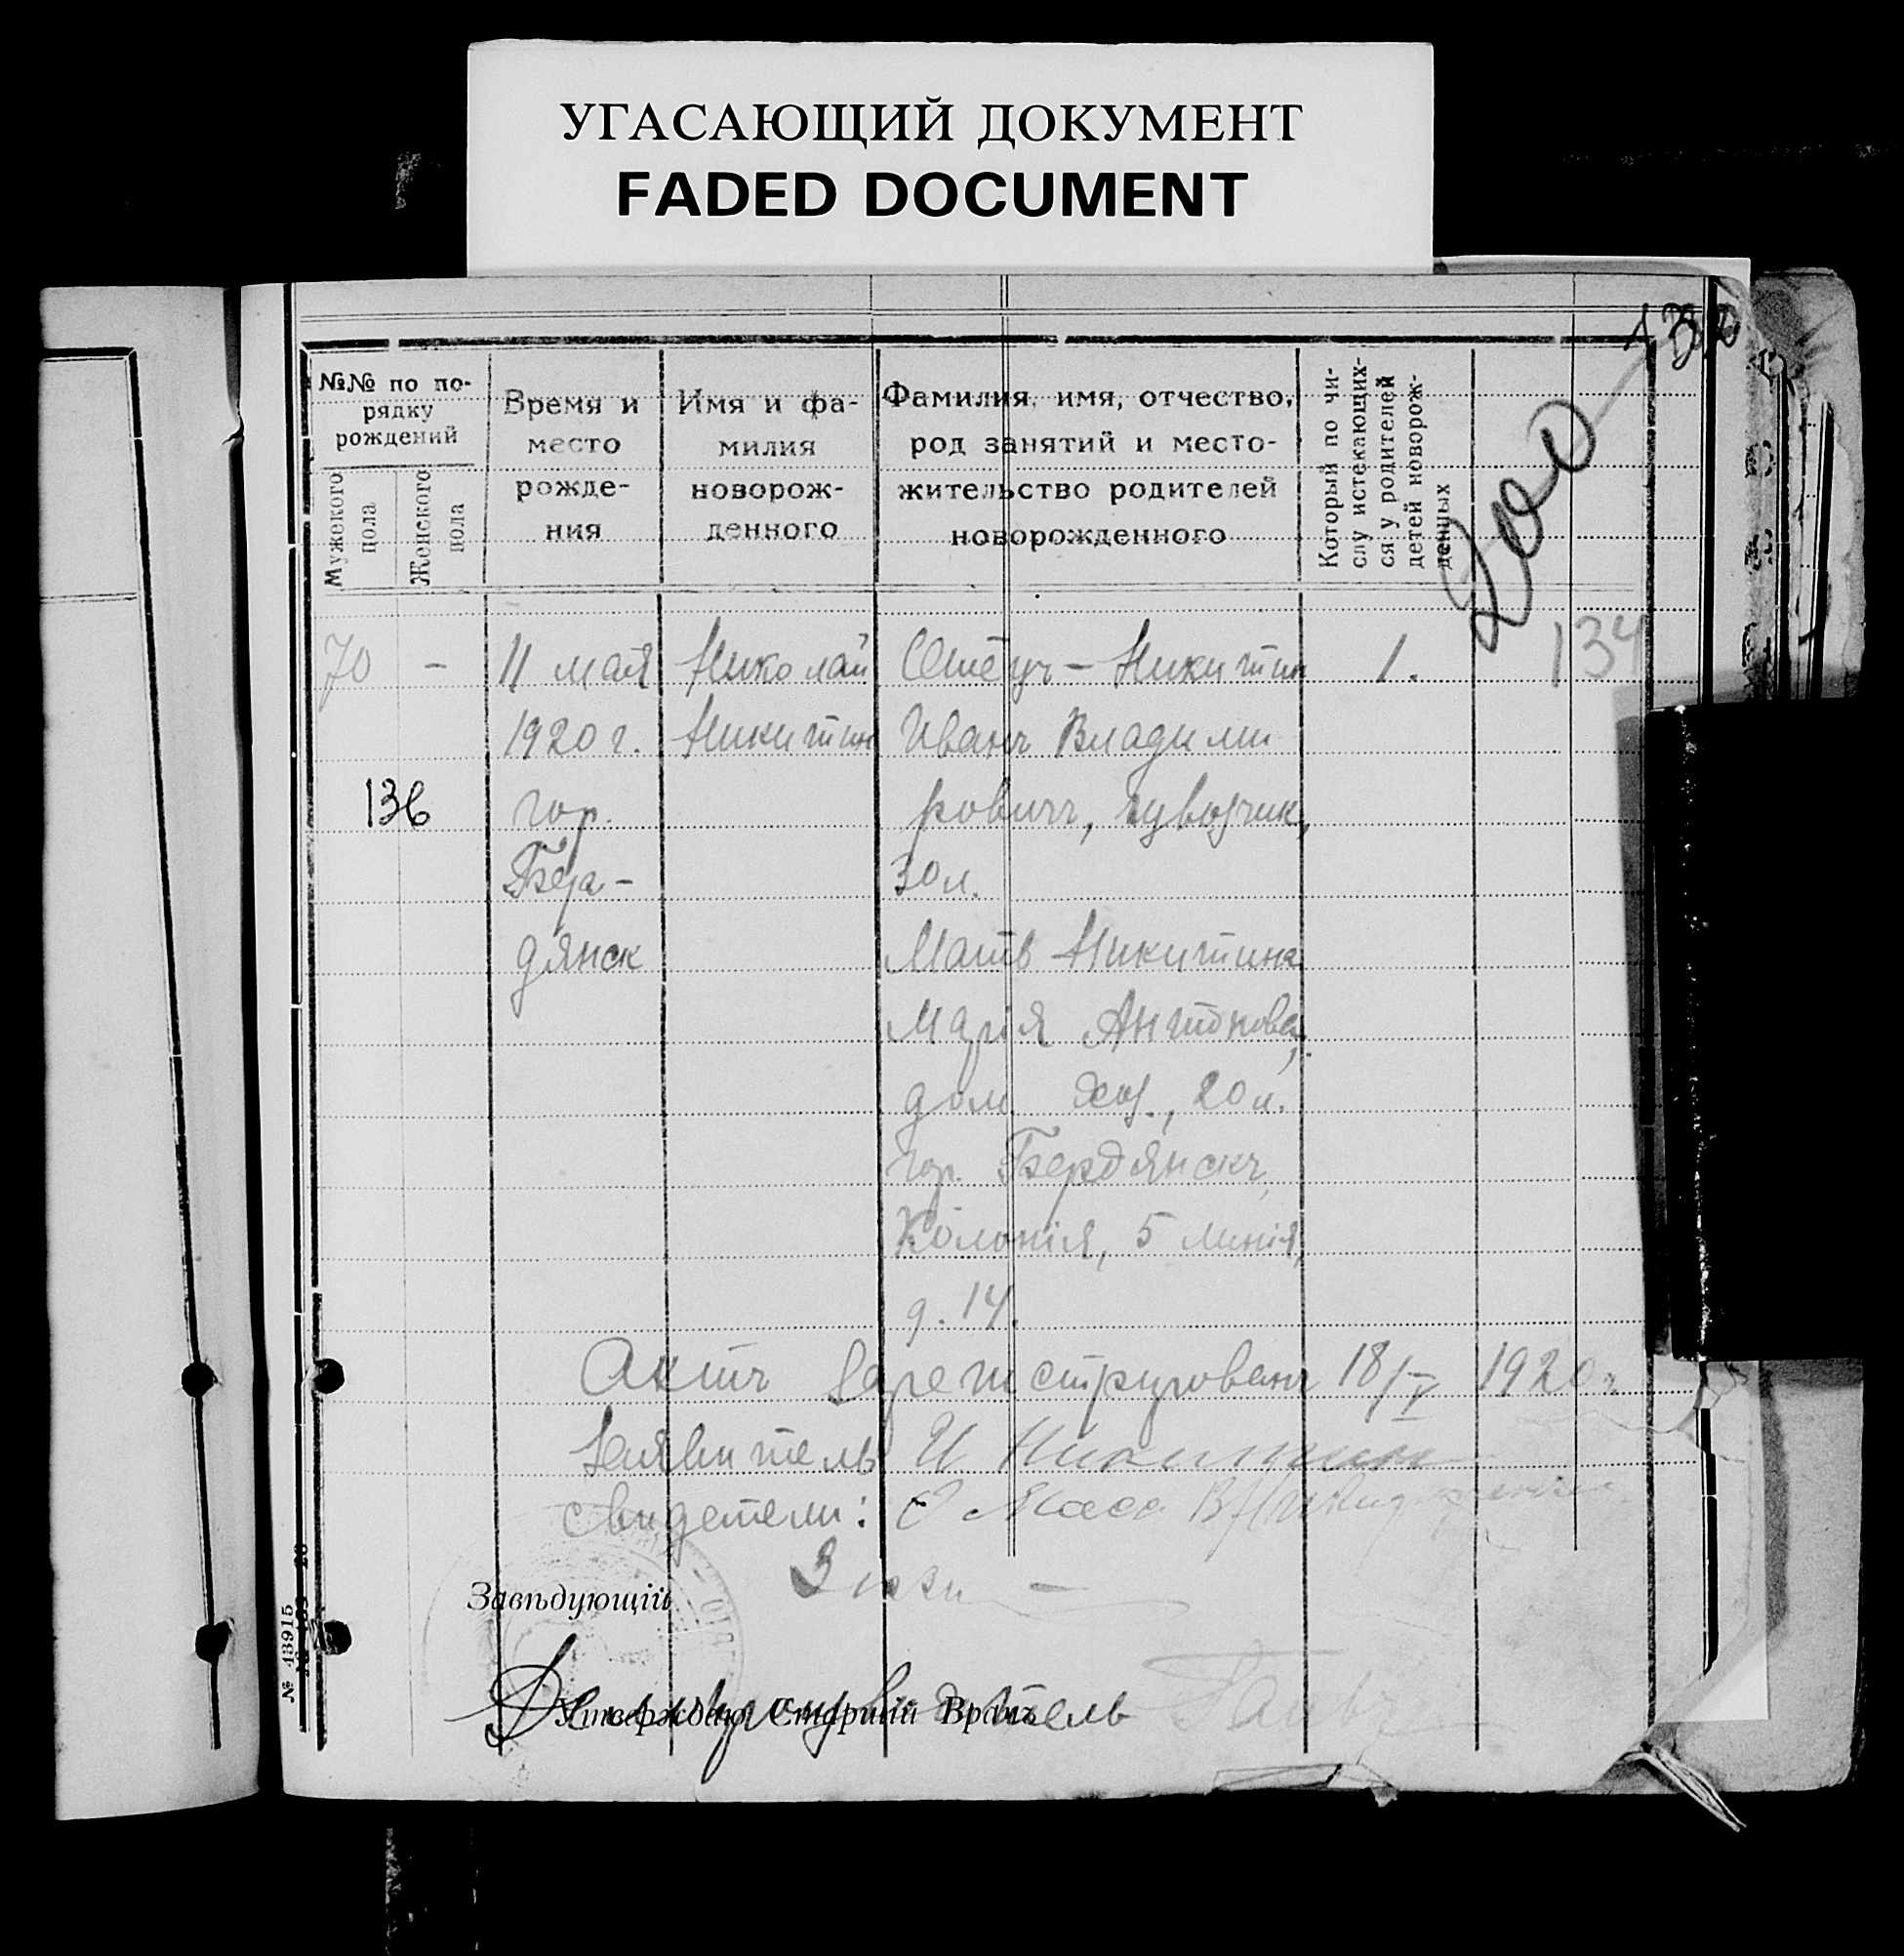 УГАСАЮЩИЙ ДОКУМЕНТ
FADED DOCUMENT
№№ по по-
рядку
рождений
Мужского
пола
Женского
пола
Время и
место
рожде-
ния
Имя и фа-
милия
новорож-
денного
Фамилия, имя, отчество,
род занятий и место-
жительство родителей
новорожденного
Который по чи-
слу истекающих-
ся у родителей
детей новорож-
денных
70 - 11 мая Николай Отецъ - Никитин 1. 134
1920 г. Никитин Иванъ Владими
136 гор. ровичъ,
Бер- 30 л.
дянск Мать Никитина
Мария Антоновна,
дом. хоз., 20 л.
гор. Бердянскъ,
Колонія, 5 линія,
д. 14.
Актъ зарегистрированъ 18/V 1920 г.
Заявитель И Никитин
свидетели:
Завѣдующій
Утверждаю: Старшій Врачъ
Делопроизводитель
№ 43915